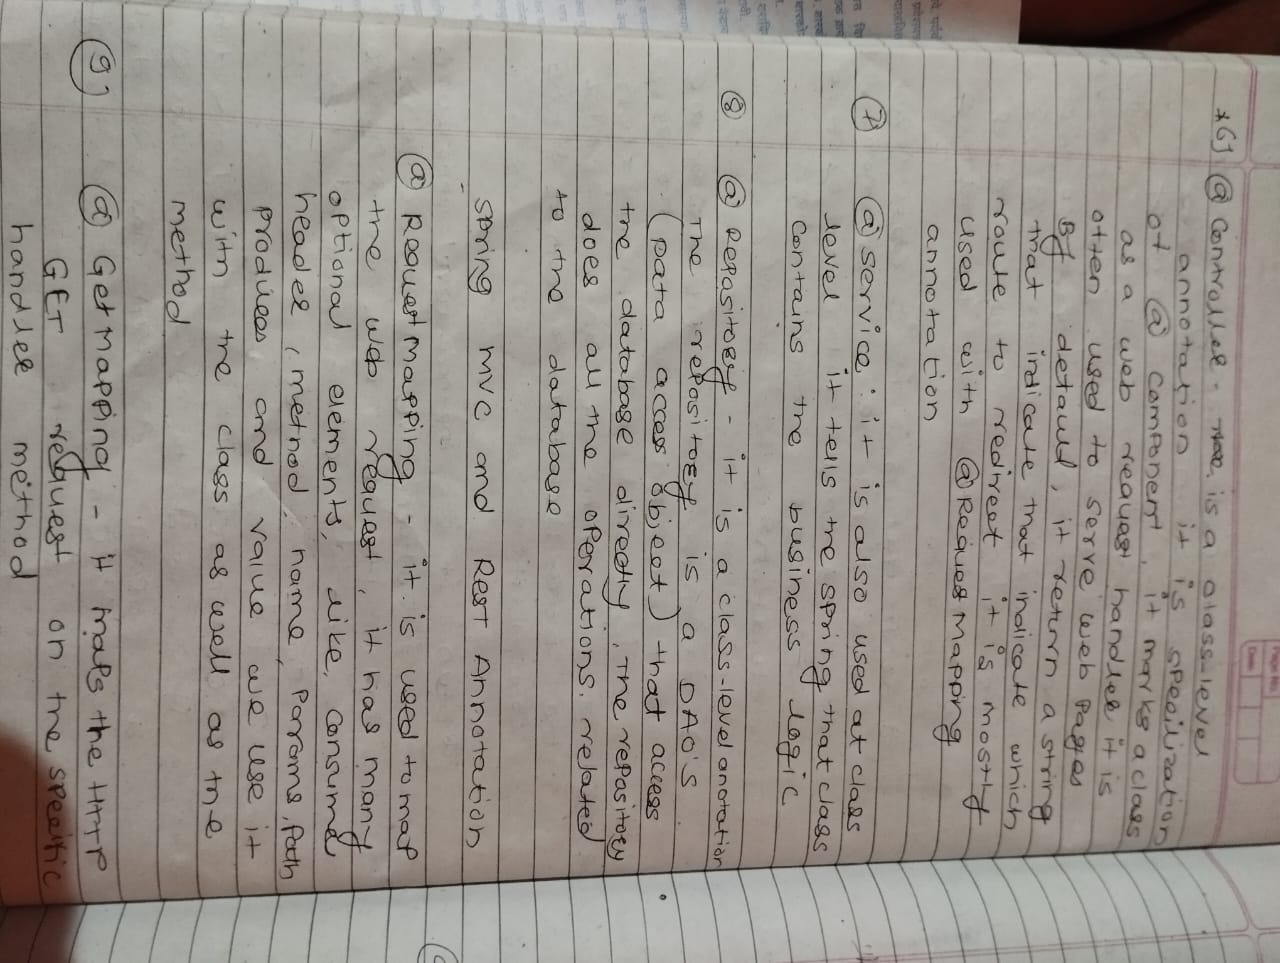 *6) @ Controller - is a class-level
annotation it is speilization
of @ component, it marks a class
as a web request handler it is
often used to serve web pages
By default, it return a string
that indicate that indicate which
route to redireat it is mostly
used with @ Request mapping
annotation
7) @ service : it is also used at class
level it tells the spring that class
contains the business logic
8 @ Repository - it is a class-level anotation
The repository is a DAO'S
(Data access object) that access
the database directly, The repository
does all the operations related
to the database
spring mvc and Rest Annotation
@ Request mapping - it is used to map
the web request, it has many
optional elements, like, consume
header, method, name, Params, Path
produces and value we use it
with the class as well as the
method
9) @ Get mapping - it maps the HTTP
GET request on the specific
handler method
Page No.
Date